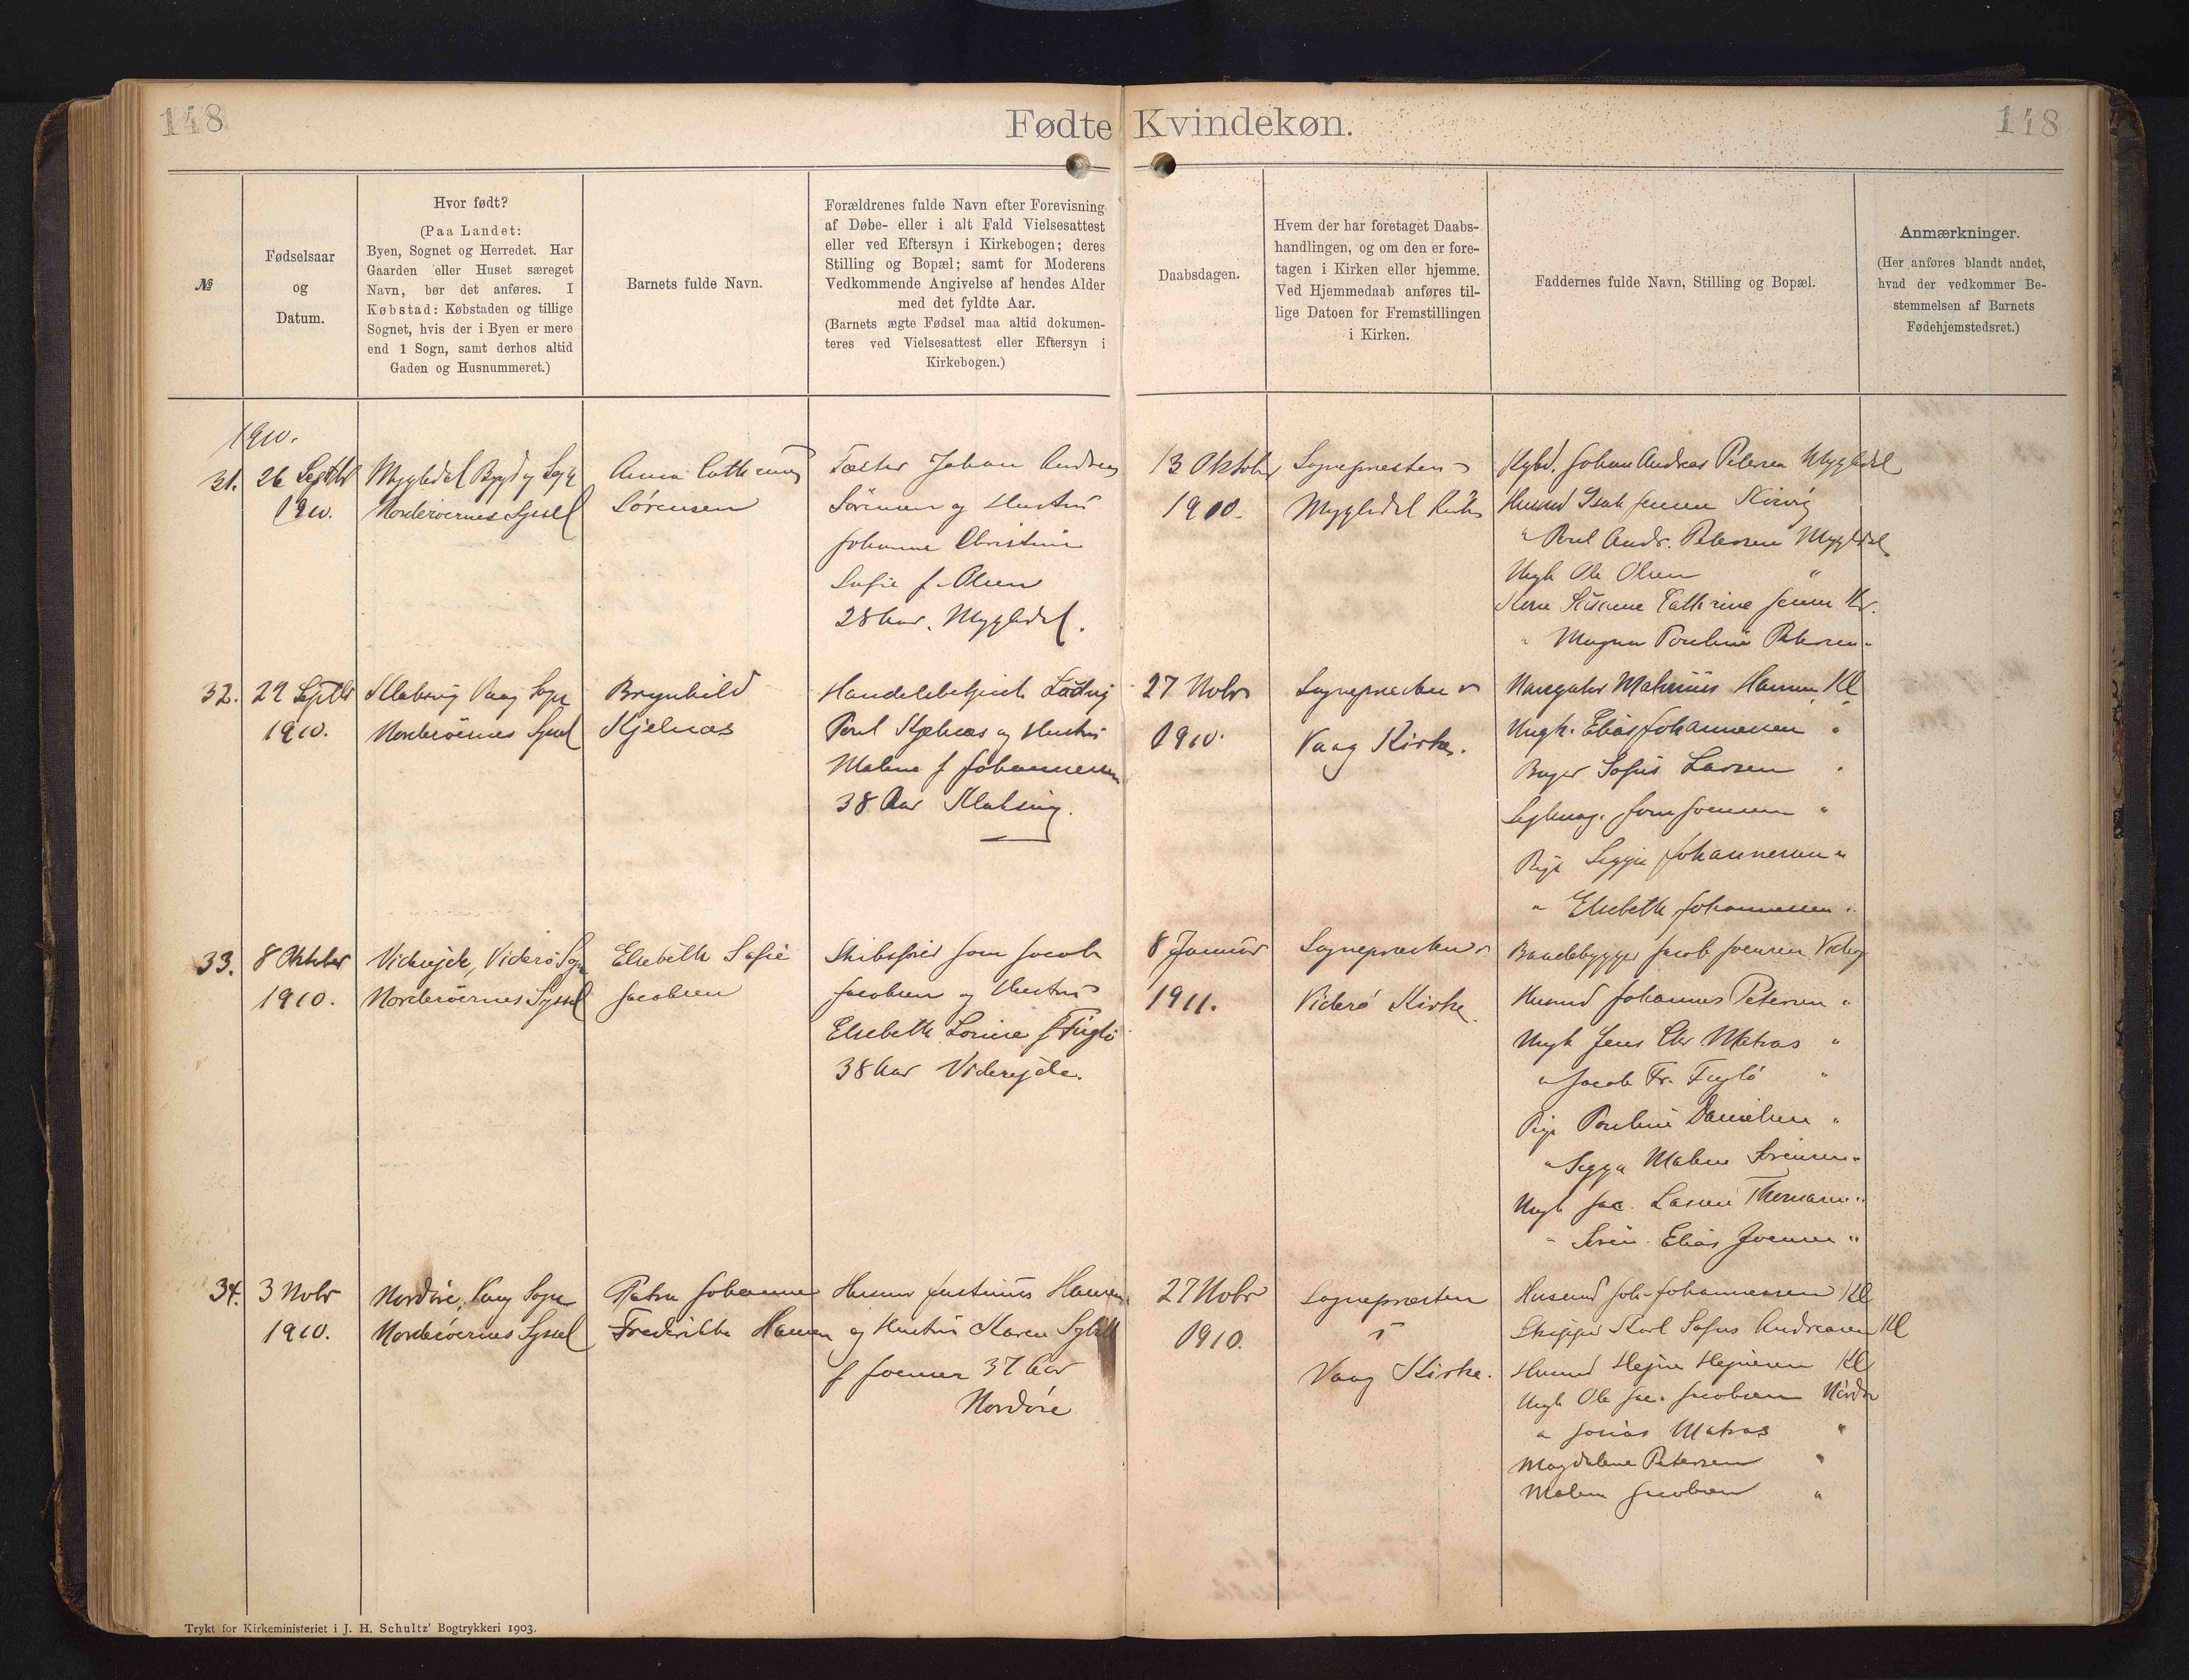 148
Fødte Kvindekøn.
148
№
Fødselsaar
og
Datum.
Hvor født?
(Paa Landet:
Byen, Sognet og Herredet. Har
Gaarden eller Huset særeget
Navn, bør det anføres. I
Købstad: Købstaden og tillige
Sognet, hvis der i Byen er mere
end 1 Sogn, samt derhos altid
Gaden og Husnummeret.)
Barnets fulde Navn.
Forældrenes fulde Navn efter Forevisning
af Døbe- eller i alt Fald Vielsesattest
eller ved Eftersyn i Kirkebogen; deres
Stilling og Bopæl; samt for Moderens
Vedkommende Angivelse af hendes Alder
med det fyldte Aar.
(Barnets ægte Fødsel maa altid dokumen-
teres ved Vielsesattest eller Eftersyn i
Kirkebogen.)
Daabsdagen.
Hvem der har foretaget Daabs-
handlingen, og om den er fore-
tagen i Kirken eller hjemme.
Ved Hjemmedaab anføres til-
lige Datoen for Fremstillingen
i Kirken.
Faddernes fulde Navn, Stilling og Bopæl.
Anmærkninger.
(Her anføres blandt andet,
hvad der vedkommer Be-
stemmelsen af Barnets
Fødehjemstedsret.)
1910.
31.
26 Septbr
1910.
Mygledal Bygd
Norderøernes Syssel
Anna Cathrine
Sørensen
Fæster Johan Andreas
Sörensen og Hustru
Johanne Christine
Sofie f. Olsen
28 Aar. Mygledal.
13 Oktober
1910.
Sognepræsten i
Mygledal Kirke
Johan Andreas Petersen Mygledal
Husmd Isak Jensen
" Poul Andr. Petersen Mygledal
Ungk Ole Olsen "
Kone Susanne Cathrine Jensen
" Magna Pouline Petersen
32.
29 Septbr
1910.
Klaksvig Vaag Sogn
Norderöernes Syssel
Brynhild
Kjelnæs
Ludvig
Poul Kjelnæs og Hustru
Malene f Johannesen
38 Aar Klaksvig.
27 Nobr
1910.
Sognepræsten i
Vaag Kirke.
Matinus Hansen, Kl
Ungk. Elias Johannesen "
Bager Sofus Larsen "
Joen Joensen "
Pige Siggja Johannesen "
" Elsebeth Johannesen "
33.
8 Oktober
1910.
Viderejde, Viderø Sogn
Norderöernes Syssel
Elsebeth Sofie
Jacobsen
Skibsfører Joen Jacob
Jacobsen og Hustru
Elsebeth Lovise f Fuglö
38 Aar Viderejde.
8 Januar
1911.
Sognepræsten i
Viderö Kirke.
Baadebygger Jacob Joensen
Husmd Johannes Petersen "
Ungk Jens Chr Matras "
" Jacob Fr. Fuglö "
Pige Pouline Danielsen "
" Sigga Malene Sörensen "
Ungk Jac. Lasse Thomasen "
" Sören Elias Joensen "
34.
3 Nobr
1910.
Nordöre, Vaag Sogn
Norderöernes Syssel
Petra Johanne
Frederikke Hansen
Justinus Hansen
og Hustru Karen Sybille
f Joensen 37 Aar
Nordöre
27 Nobr
1910.
Sognepræsten
i
Vaag Kirke.
Husmd Joh. Johannessen Kl
Skipper Karl Sofus Andreasen Kl
Husmd Hejne Hejnesen Kl
Ungk Ole Jac. Jacobsen Nordör
" Jonas Matras "
Magdalene Petersen "
Malene Jacobsen "
Trykt for Kirkeministeriet i J. H. Schultz' Bogtrykkeri 1903.